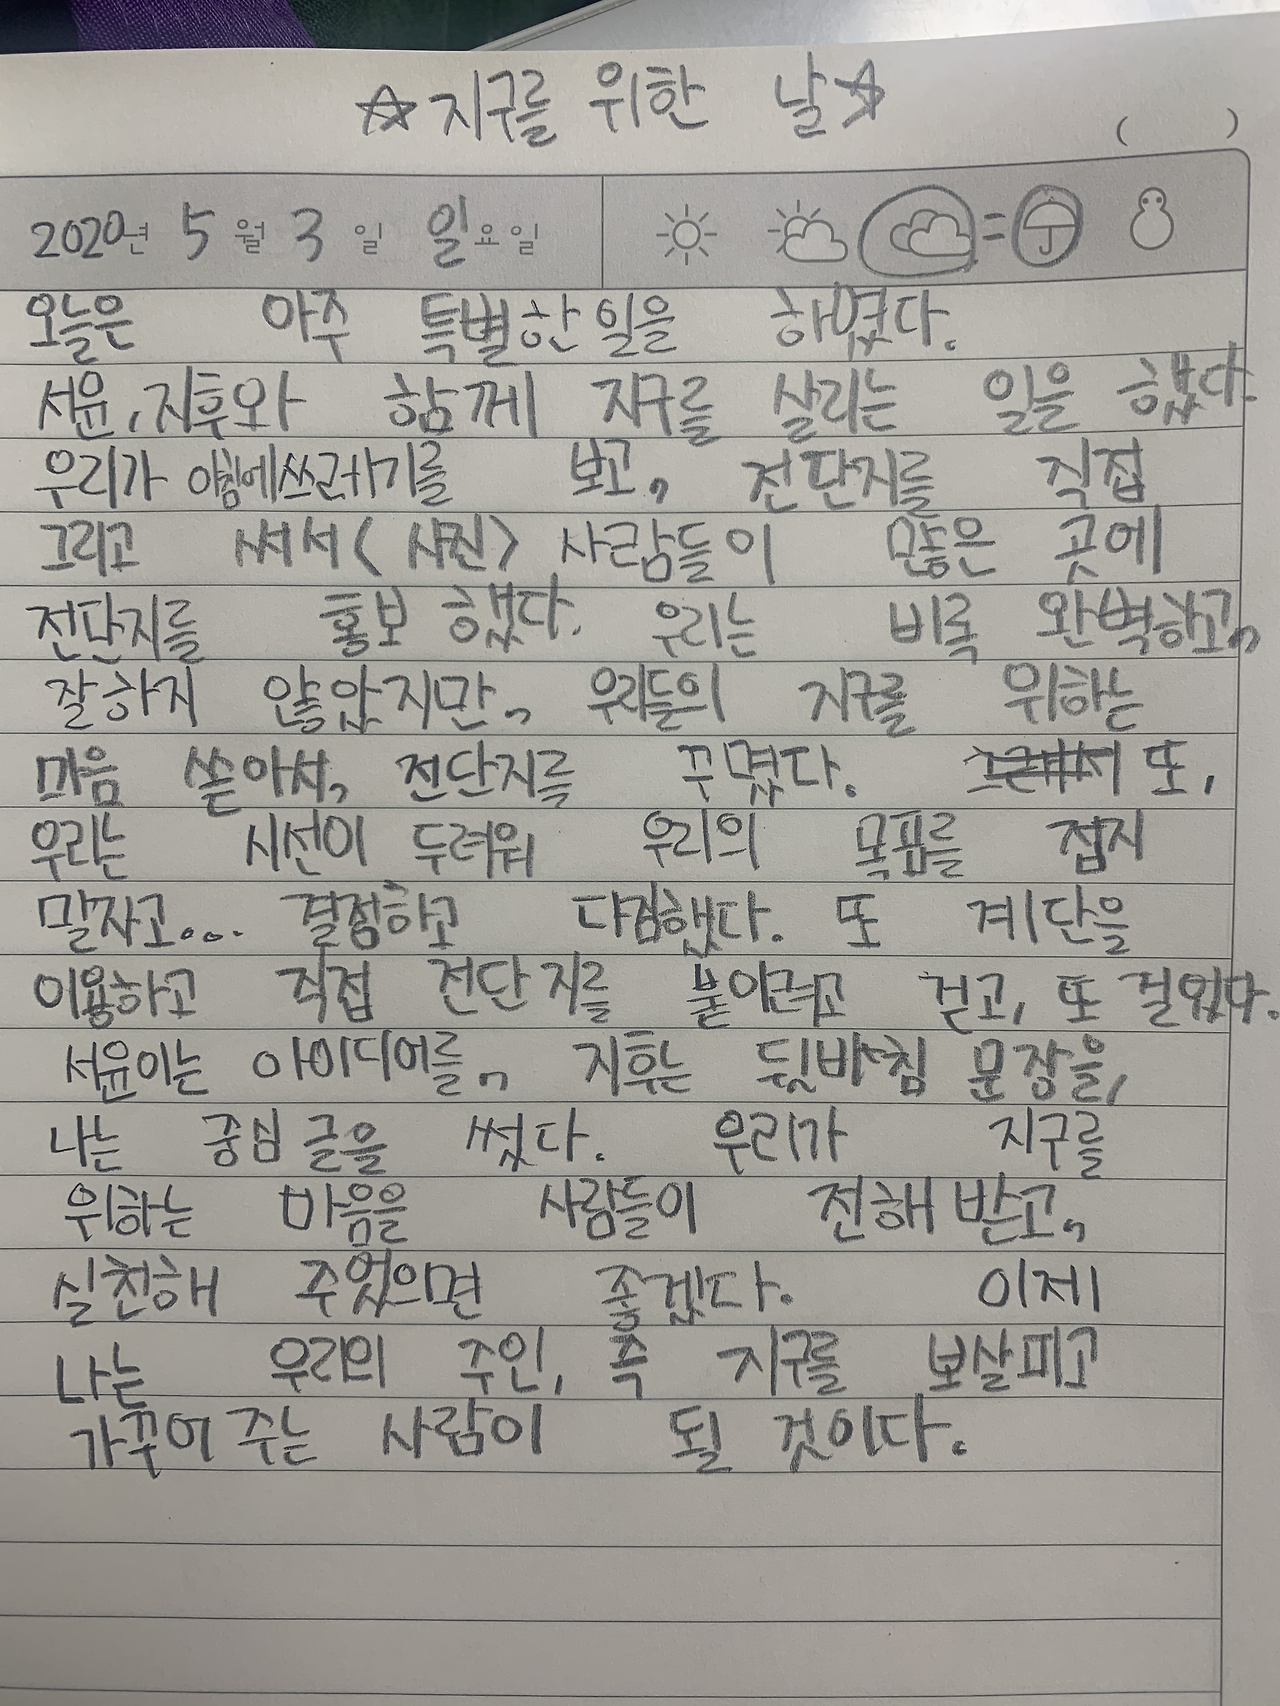 ☆지구를 위한 날☆
( )
2020년 5월 3일 일요일
오늘은 아주 특별한 일을 하였다.
서윤, 지후와 함께 지구를 살리는 일을 했다.
우리가 아침에 쓰레기를 보고, 전단지를 직접
그리고 써서<사진> 사람들이 많은 곳에
전단지를 홍보 했다. 우리는 비록 완벽하고,
잘하지 않았지만, 우리들의 지구를 위하는
마음 쏟아서, 전단지를 꾸몄다. 또,
우리는 시선이 두려워 우리의 목표를 접지
말자고... 결정하고 다짐했다. 또 계단을
이용하고 직접 전단지를 붙이려고 걷고, 또 걸었다.
서윤이는 아이디어를, 지후는 뒷받침 문장을,
나는 중심 글을 썼다. 우리가 지구를
위하는 마음을 사람들이 전해 받고,
실천해 주었으면 좋겠다. 이제
나는 우리의 주인, 즉 지구를 보살피고
가꾸어 주는 사람이 될 것이다.